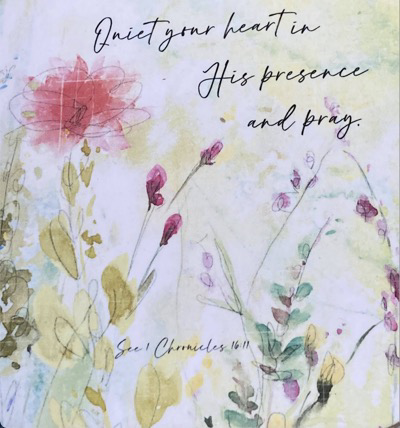 Quiet your heart in
His presence
and pray.
See 1 Chronicles 16:11